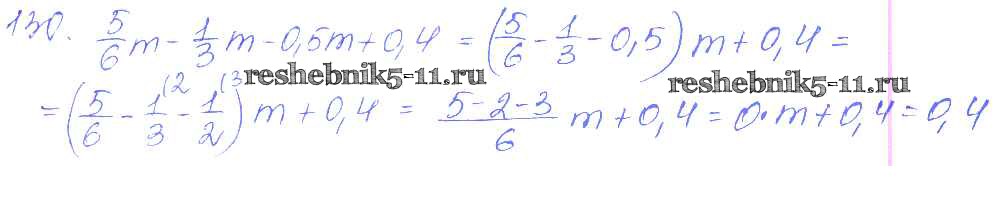 130. 5/6 m - 1/3 m - 0,5m + 0,4 = (5/6 - 1/3 - 0,5) m + 0,4 =
reshebnik5-11.ru reshebnik5-11.ru
= (5/6 - 1/3 (2 - 1/2 (3) m + 0,4 = (5-2-3)/6 m + 0,4 = 0·m + 0,4 = 0,4